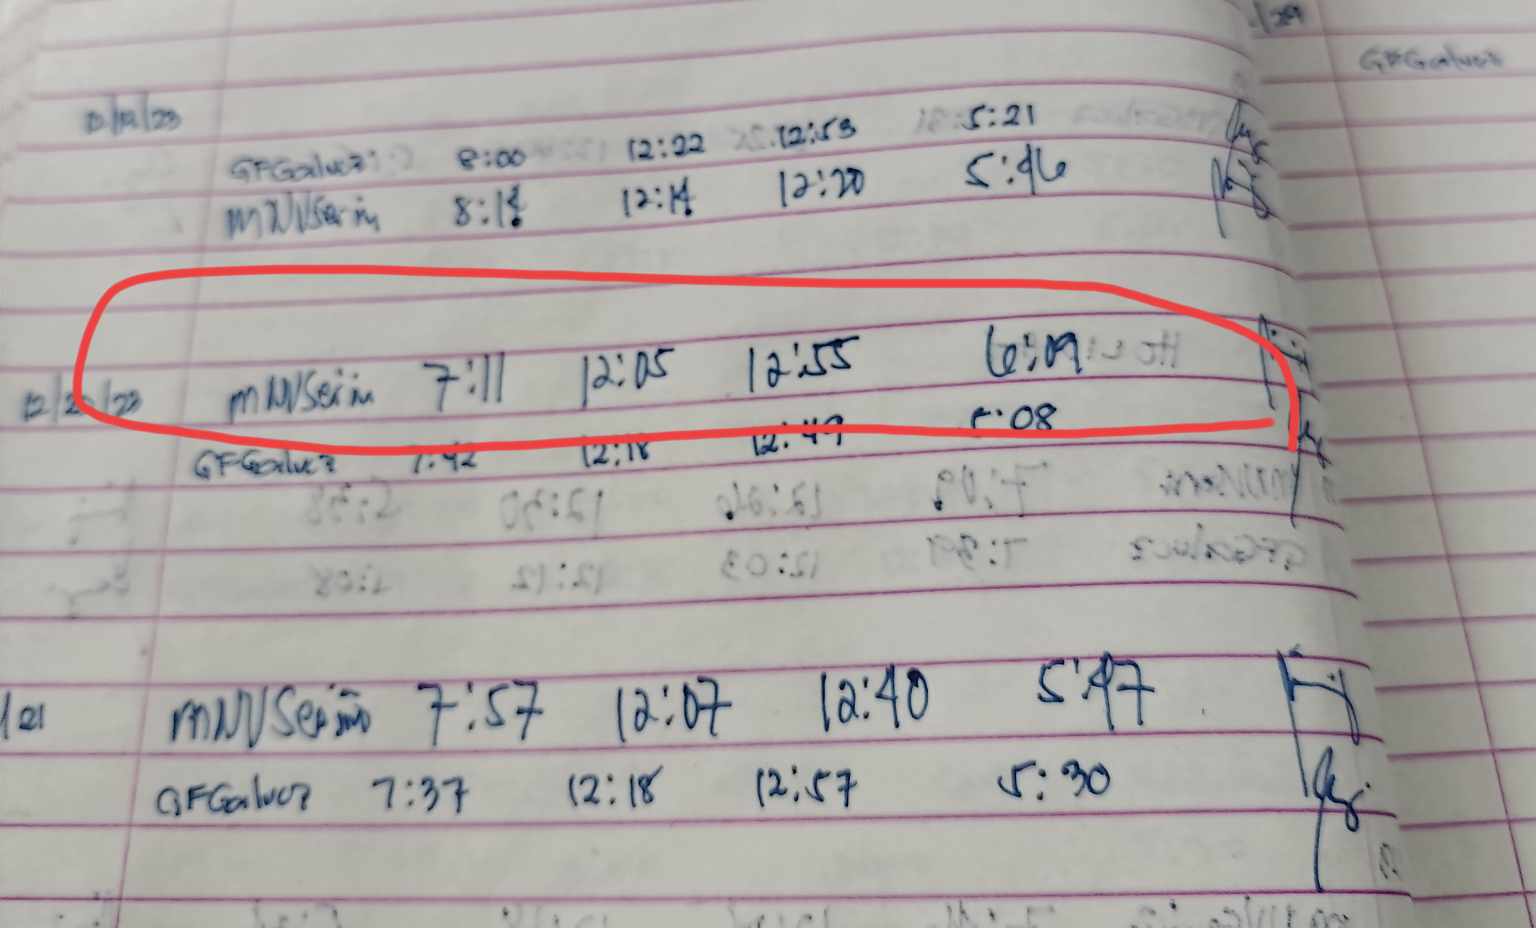 12/19/23
GFGalvez 8:00 12:22 12:53 5:21
MNVSerim 8:14 12:14 12:20 5:46
12/20/23 MNVSerim 7:11 12:05 12:55 6:09
GFGalvez 7:42 12:18 12:49 5:08
/21 MNVSerim 7:57 12:07 12:40 5:47
GFGalvez 7:37 12:18 12:57 5:30
GFGalvez